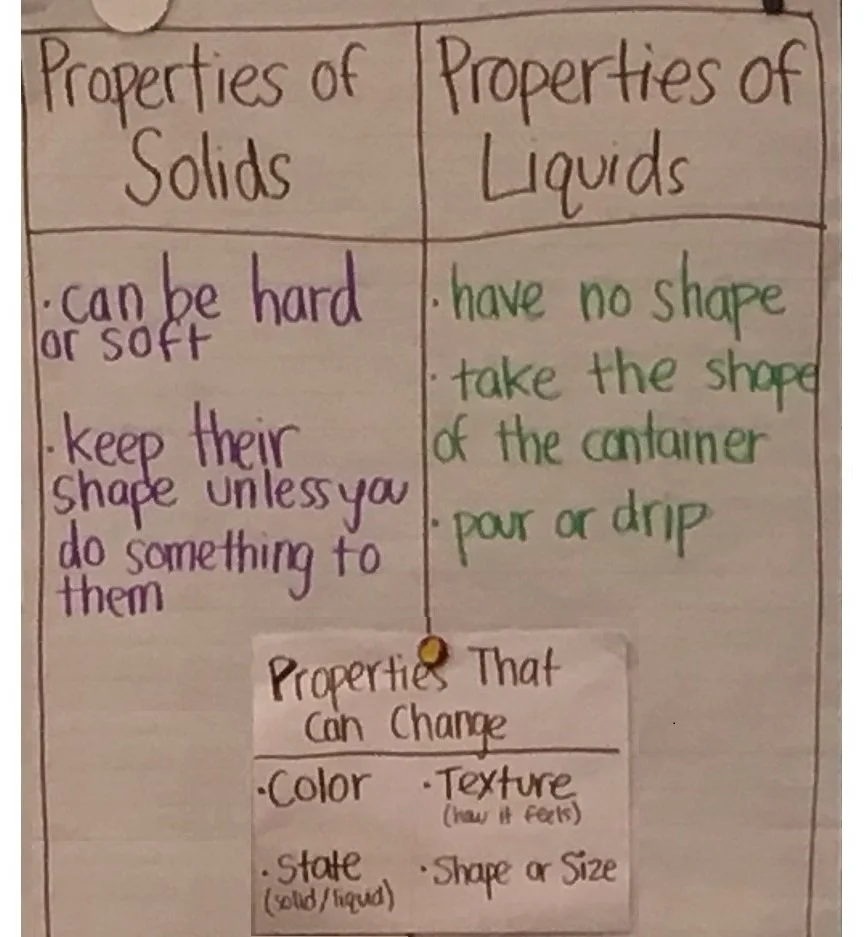 Properties of
Solids
· can be hard
or soft
· keep their
shape unless you
do something to
them
Properties of
Liquids
· have no shape
· take the shape
of the container
· pour or drip
Properties That
Can Change
· Color
· State
(solid/liquid)
· Texture
(how it feels)
· Shape or Size